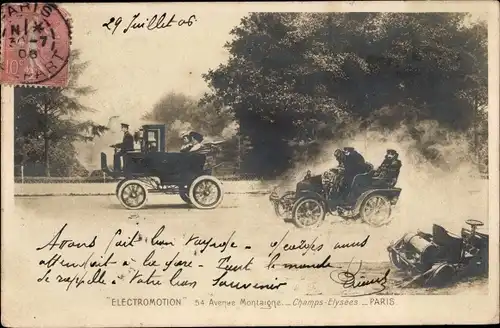 PARIS
29 Juillet 06
DÉPART
Avons fait bon voyage - oncle nous
attendait à la gare. Tout le monde
se rappelle à votre bon souvenir
"ELECTROMOTION" 54 Avenue Montaigne _ Champs-Elysées _ PARIS